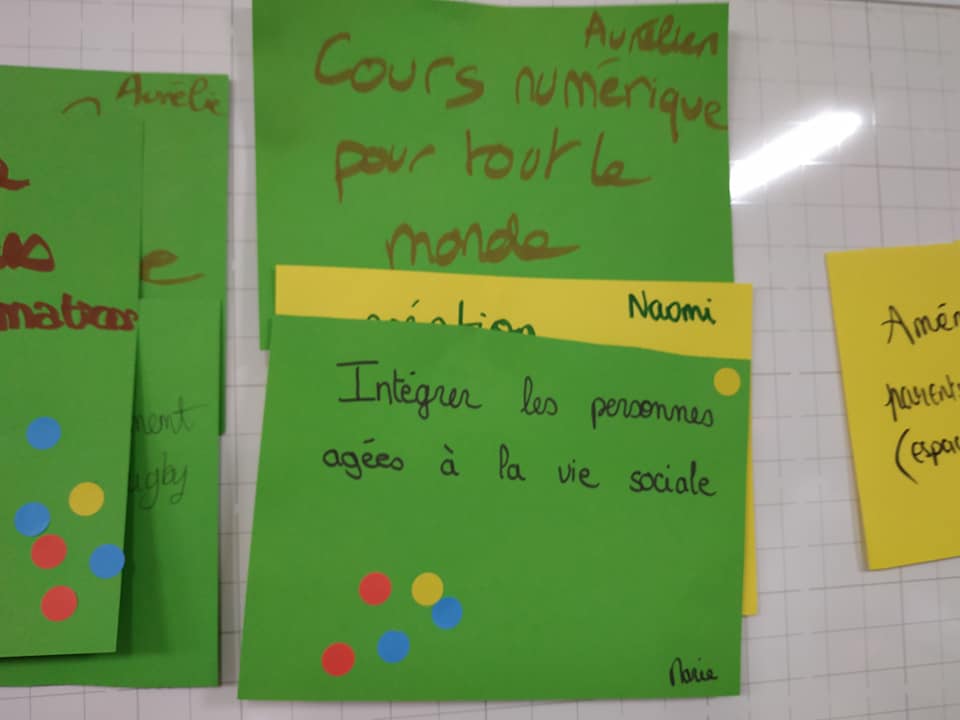 Aurélie
e
mations
ment
Aurélien
Cours numérique
pour tout le
monde
Naomi
création
Intégrer les personnes
agées à la vie sociale
Marie
Amén
parents
(espac